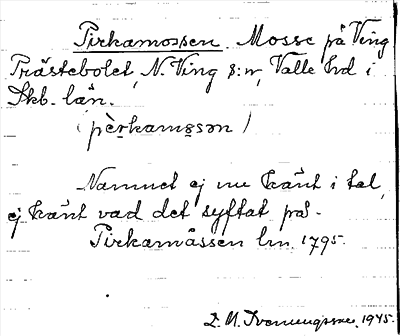 Pirkamossen. Mosse på Ving
Prästebolet, N. Ving s:n, Valle hd i
Skb. län.
(pèrkamǫsǝn)
Namnet ej nu känt i tal,
ej känt vad det syftat på.
Pirkamåssen hn. 1795.
1945.